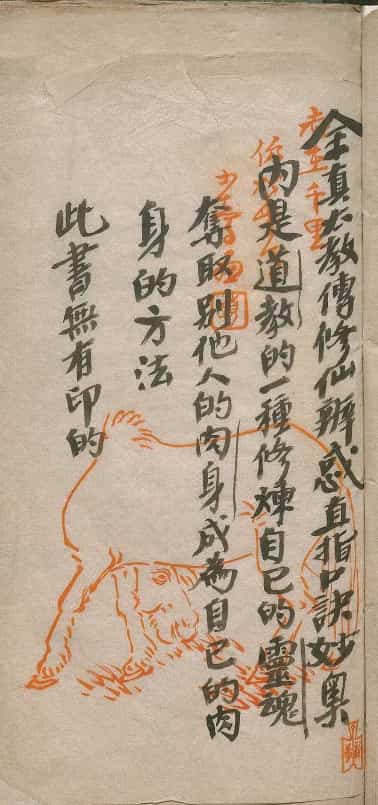 全真大教傳修仙辨惑直指口訣妙奧
內是道教的一種修煉自己的靈魂
奪取別他人的肉身成為自己的肉
身的方法
此書無有印的